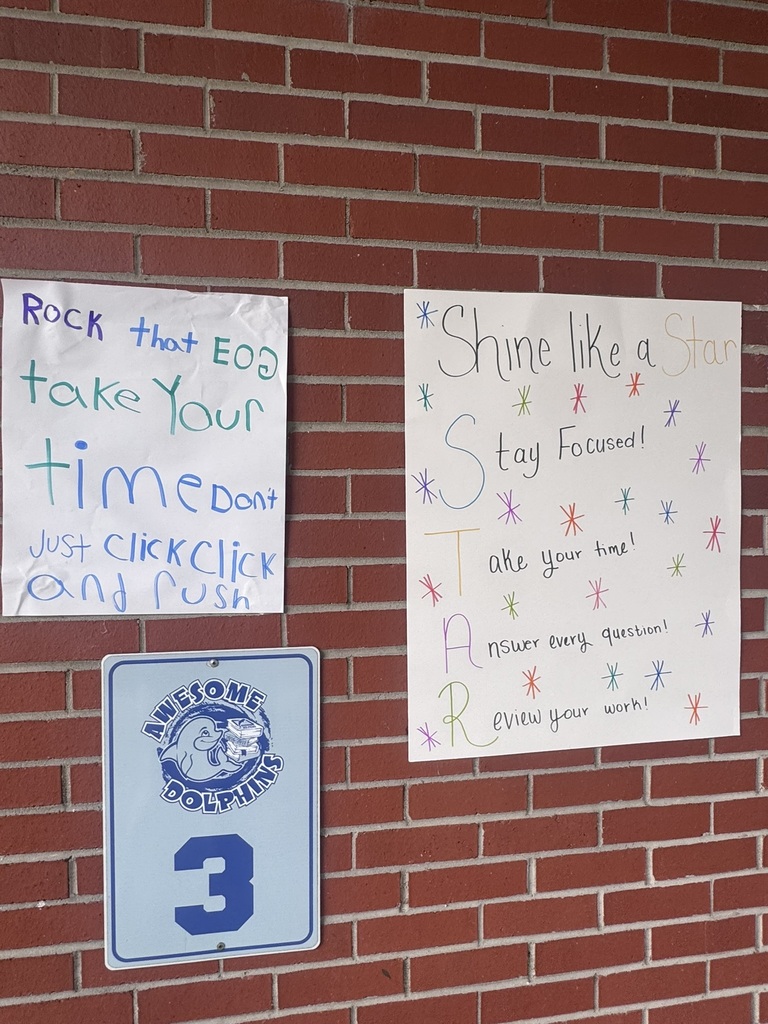 Rock that EOG
take Your
time Don't
Just click click
and rush
Shine like a Star
Stay Focused!
Take your time!
Answer every question!
Review your work!
AWESOME
DOLPHINS
3